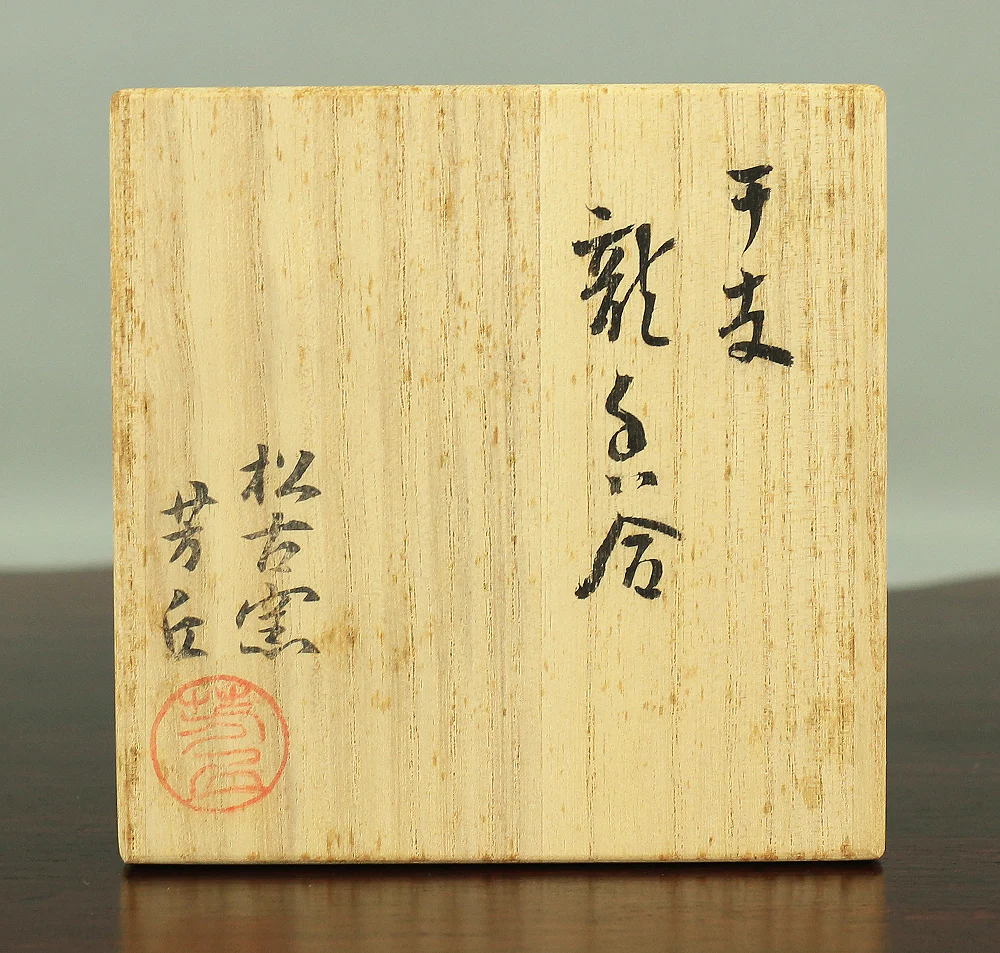 干支
龍香合
松古窯
芳丘
芳丘